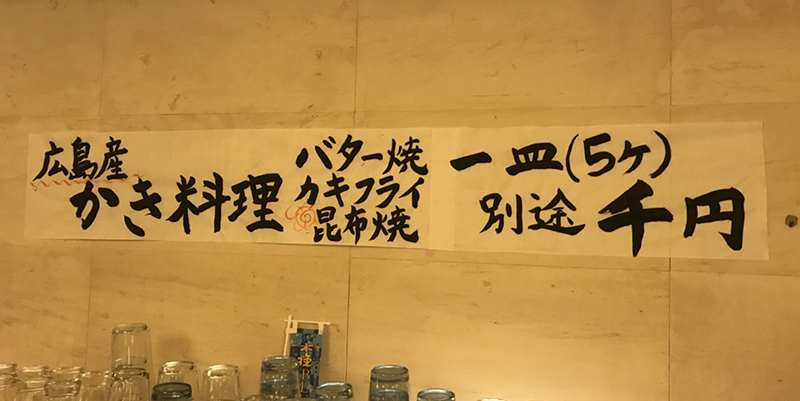 広島産
かき料理
バター焼
カキフライ
昆布焼
一皿(5ヶ)
別途 千円